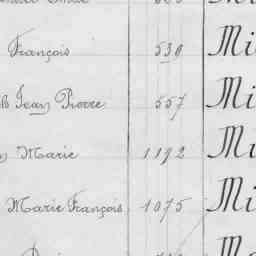 François 539 Mi
Jean Pierre 557 Mi
Marie 1192 Mi
Marie François 1075 Mi